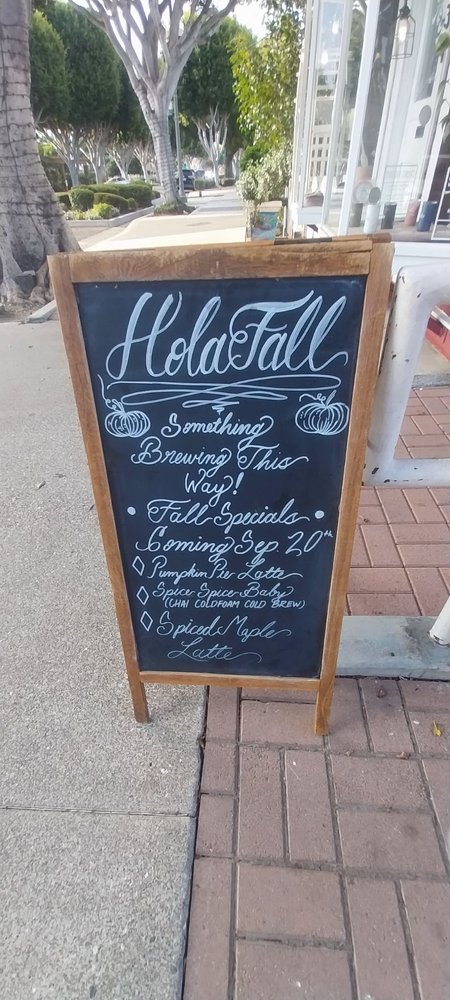 Hola Fall
Something
Brewing This
Way!
• Fall Specials •
Coming Sep. 20th
◊ Pumpkin Pie Latte
◊ Spice Spice Baby
(CHAI COLDFOAM COLD BREW)
◊ Spiced Maple
Latte